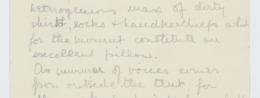 heterogenious mass of dirty
shirts, socks & handkerchiefs which
for the moment constitute an
excellent pillow.
A murmur of voices comes
from outside the tent, for